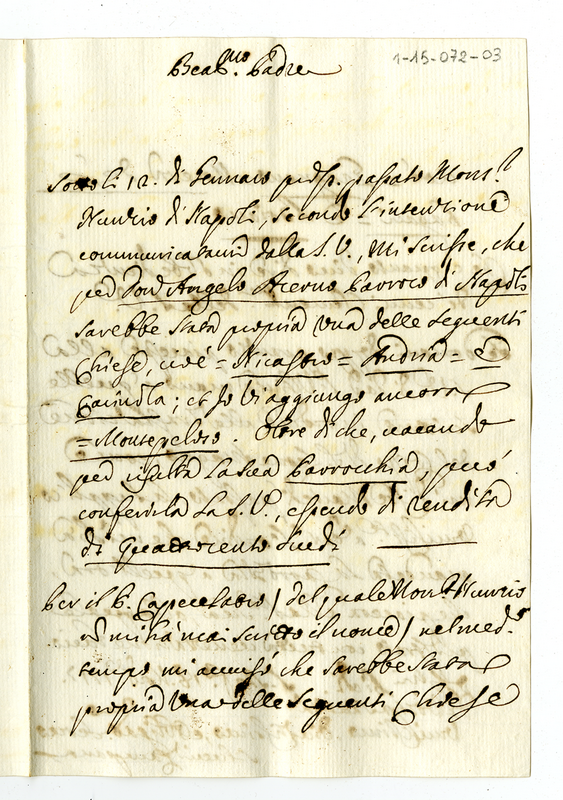 1-15-072-03
Beat.mo Padre
Sotto li 12. di Gennaro pross. passato Mons.r
Nunzio di Napoli, secondo l'intenzione
communicatami dalla S. V., mi scrisse, che
per Don Angelo Acerno Parroco di Napoli
sarebbe stata propria una delle seguenti
Chiese, cioè = Nicastro = Andria = ed
; et Io vi aggiungo ancora
= Montepeloso. Oltre di che, vacando
per la sua Parrocchia, può
conferirla la S. V., essendo di rendita
di Quattrocento Scudi
Per il P. Capecelatro / del quale Mons.r Nunzio
non mi hà mai scritto il nome / nel med.o
tempo mi accusò che sarebbe stata
propria una delle seguenti Chiese